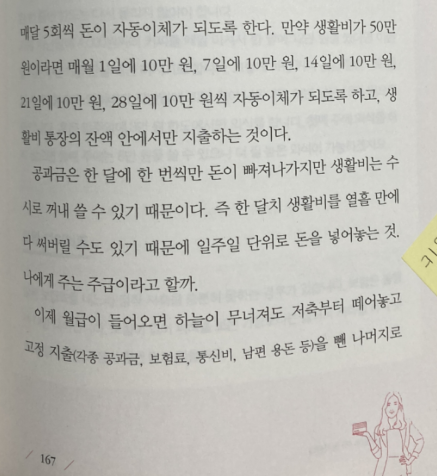 매달 5회씩 돈이 자동이체가 되도록 한다. 만약 생활비가 50만
원이라면 매월 1일에 10만 원, 7일에 10만 원, 14일에 10만 원,
21일에 10만 원, 28일에 10만 원씩 자동이체가 되도록 하고, 생
활비 통장의 잔액 안에서만 지출하는 것이다.
공과금은 한 달에 한 번씩만 돈이 빠져나가지만 생활비는 수
시로 꺼내 쓸 수 있기 때문이다. 즉 한 달치 생활비를 열흘 만에
다 써버릴 수도 있기 때문에 일주일 단위로 돈을 넣어놓는 것.
나에게 주는 주급이라고 할까.
이제 월급이 들어오면 하늘이 무너져도 저축부터 떼어놓고
고정 지출(각종 공과금, 보험료, 통신비, 남편 용돈 등)을 뺀 나머지로
/ 167 /